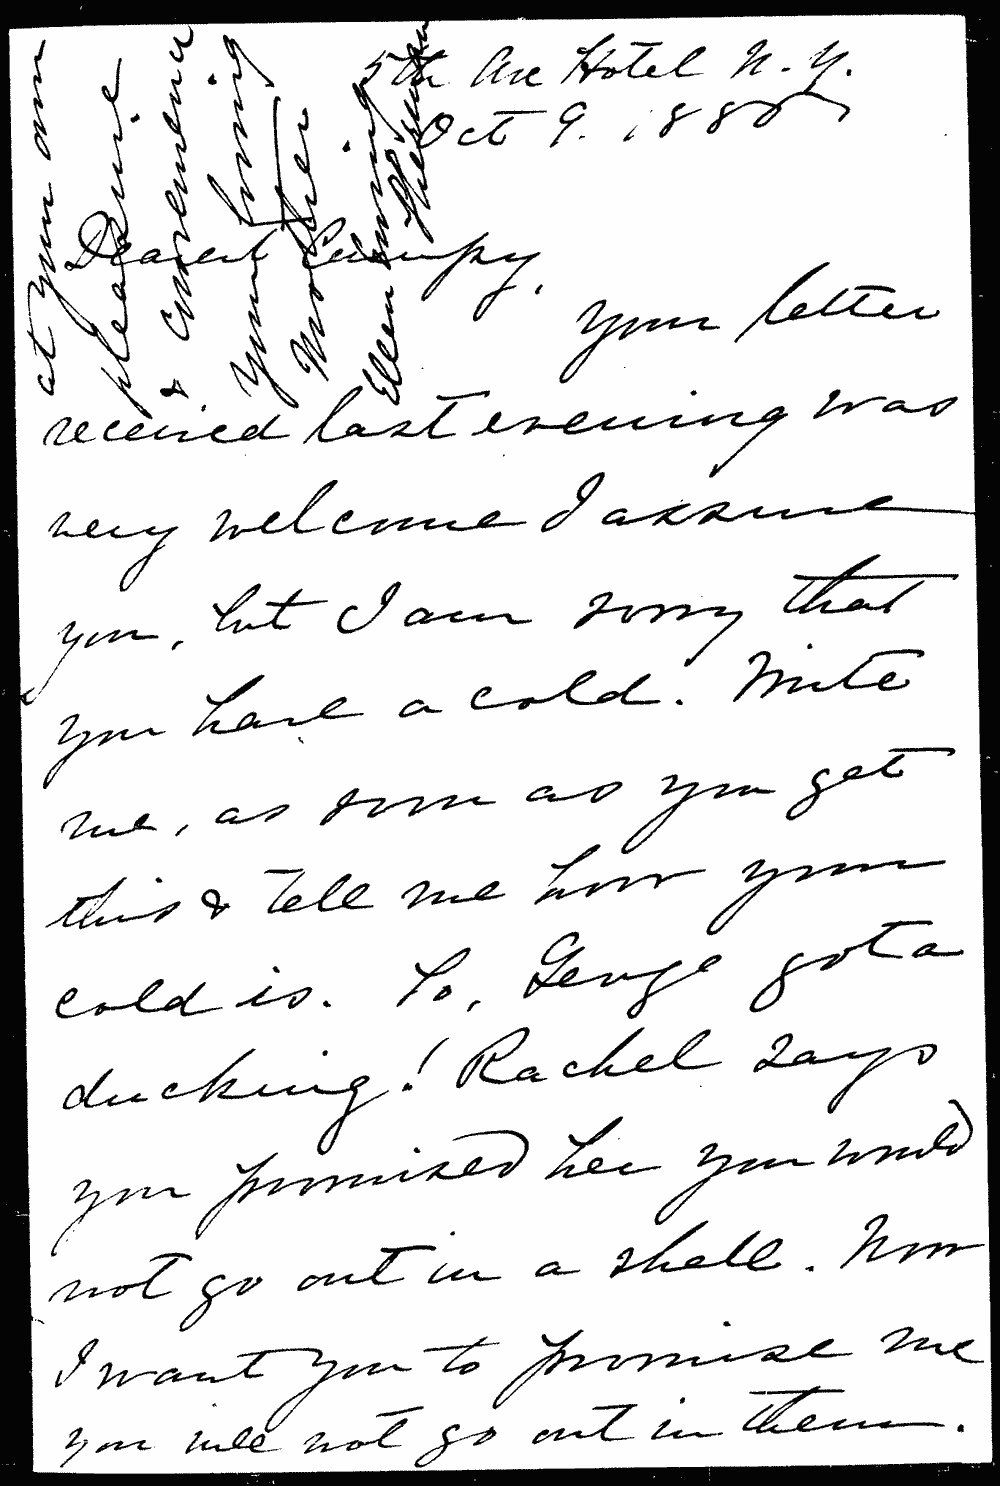 5th Ave Hotel N.Y.
Oct 9. 1880
Dearest Cumpy,
your letter
received last evening was
very welcome I assure
you, but I am sorry that
you have a cold. Write
me, as soon as you get
this & tell me how your
cold is. So, George got a
ducking! Rachel says
you promised her you would
not go out in a shell. Now
I want you to promise me
you will not go out in them.
at your own
pleasure
& convenience
Your loving
Mother
Ellen Ewing Sherman